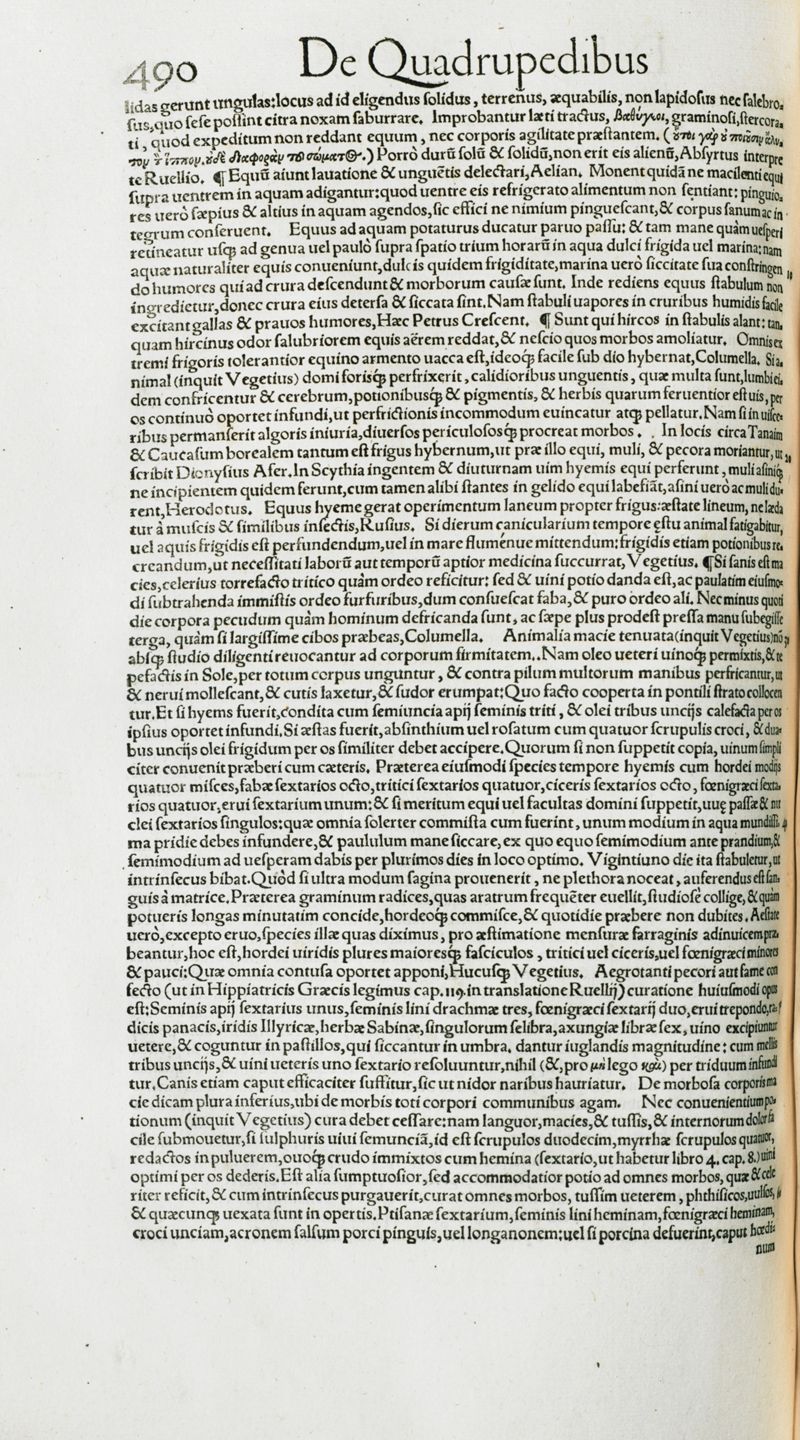 490
De Quadrupedibus
lidas gerunt ungulas: locus ad id eligendus ſolidus, terrenus, æquabilis, non lapidoſus nec ſalebro,
ſus, quo ſeſe poſſint citra noxam ſaburrare. Improbantur læti tractus, βαθύγειοι, graminoſi, ſtercora,
ti, quod expeditum non reddant equum, nec corporis agilitate præſtantem. (
Porrò durũ ſolũ & ſolidũ, non erit eis alienũ, Abſyrtus interpre
te Ruellio. ¶ Equũ aiunt lauatione & unguẽtis delectari, Aelian. Monent quidã ne macilenti equi
ſupra uentrem in aquam adigantur: quod uentre eis refrigerato alimentum non ſentiant: pinguio,
res uerò ſæpius & altius in aquam agendos, ſic effici ne nimium pingueſcant, & corpus ſanum ac in,
tegrum conſeruent. Equus ad aquam potaturus ducatur paruo paſſu: & tam mane quàm ueſperi
retineatur uſq; ad genua uel paulò ſupra ſpatio trium horarũ in aqua dulci frigida uel marina: nam
aquæ naturaliter equis conueniunt, dulcis quidem frigiditate, marina uerò ſiccitate ſua conſtringen,,
do humores qui ad crura deſcendunt & morborum cauſæ ſunt. Inde rediens equus ſtabulum non
ingredietur, donec crura eius deterſa & ſiccata ſint. Nam ſtabuli uapores in cruribus humidis facile
excitant gallas & prauos humores, Hæc Petrus Creſcent. ¶ Sunt qui hircos in ſtabulis alant: tan,
quam hircinus odor ſalubriorem equis aërem reddat, & neſcio quos morbos amoliatur. Omnis ex
tremi frigoris tolerantior equino armento uacca eſt, ideoq; facile ſub dio hybernat, Columella. Si a,
nimal (inquit Vegetius) domi foriſq; perfrixerit, calidioribus unguentis, quæ multa ſunt, lumbi ei,
dem confricentur & cerebrum, potionibuſq; & pigmentis, & herbis quarum feruentior eſt uis, per
os continuò oportet infundi, ut perfrictionis incommodum euincatur atq; pellatur. Nam ſi in uiſce,
ribus permanſerit algoris iniuria, diuerſos periculoſoſq; procreat morbos. In locis circa Tanaim
& Caucaſum borealem tantum eſt frigus hybernum, ut præ illo equi, muli, & pecora moriantur, ut,,
ſcribit Dionyſius Afer. In Scythia ingentem & diuturnam uim hyemis equi perferunt, muli aſiniq;
ne incipientem quidem ferunt, cum tamen alibi ſtantes in gelido equi labefiãt, aſini uerò ac muli du,
rent, Herodotus. Equus hyeme gerat operimentum laneum propter frigus: æſtate lineum, ne læda
tur à muſcis & ſimilibus inſectis, Ruſius. Si dierum canicularium tempore ęſtu animal fatigabitur,
uel aquis frigidis eſt perfundendum, uel in mare flumẽnue mittendum: frigidis etiam potionibus re,
creandum, ut neceſſitati laborũ aut temporũ aptior medicina ſuccurrat, Vegetius. ¶ Si ſanis eſt ma
cies, celerius torrefacto tritico quàm ordeo reficitur: ſed & uini potio danda eſt, ac paulatim eiuſmo,
di ſubtrahenda immiſtis ordeo furfuribus, dum conſueſcat faba, & puro ordeo ali. Nec minus quoti
die corpora pecudum quàm hominum defricanda ſunt, ac ſæpe plus prodeſt preſſa manu ſubegiſſe
terga, quàm ſi largiſſime cibos præbeas, Columella. Animalia macie tenuata (inquit Vegetius) nõ,,
abſq; ſtudio diligenti reuocantur ad corporum firmitatem.. Nam oleo ueteri uinoq; permixtis, & te
pefactis in Sole, per totum corpus unguntur, & contra pilum multorum manibus perfricantur, ut
& nerui molleſcant, & cutis laxetur, & ſudor erumpat: Quo facto cooperta in pontili ſtrato collocen
tur. Et ſi hyems fuerit, condita cum ſemiuncia apij ſeminis triti, & olei tribus uncijs calefacta per os
ipſius oportet infundi. Si æſtas fuerit, abſinthium uel roſatum cum quatuor ſcrupulis croci, & dua,
bus uncijs olei frigidum per os ſimiliter debet accipere. Quorum ſi non ſuppetit copia, uinum ſimpli
citer conuenit præberi cum cæteris. Præterea eiuſmodi ſpecies tempore hyemis cum hordei modijs
quatuor miſces, fabæ ſextarios octo, tritici ſextarios quatuor, ciceris ſextarios octo, fœnigræci ſexta,
rios quatuor, erui ſextarium unum: & ſi meritum equi uel facultas domini ſuppetit, uuę paſſæ & nu
clei ſextarios ſingulos: quæ omnia ſolerter commiſta cum fuerint, unum modium in aqua mundiſſi,,
ma pridie debes infundere, & paululum mane ſiccare, ex quo equo ſemimodium ante prandium, &
ſemimodium ad ueſperam dabis per plurimos dies in loco optimo. Vigintiuno die ita ſtabuletur, ut
intrinſecus bibat. Quòd ſi ultra modum ſagina prouenerit, ne plethora noceat, auferendus eſt ſan,
guis à matrice. Præterea graminum radices, quas aratrum frequẽter euellit, ſtudioſè collige, & quàm
potueris longas minutatim concide, hordeoq; commiſce, & quotidie præbere non dubites. Aeſtate
uerò, excepto eruo, ſpecies illæ quas diximus, pro æſtimatione menſuræ farraginis adinuicem præ,
beantur, hoc eſt, hordei uiridis plures maioreſq; faſciculos, tritici uel ciceris, uel fœnigræci minores
& pauci: Quæ omnia contuſa oportet apponi, Hucuſq; Vegetius. Aegrotanti pecori aut fame con
fecto (ut in Hippiatricis Græcis legimus cap. 119. in translatione Ruellij) curatione huiuſmodi opus
eſt: Seminis apij ſextarius unus, ſeminis lini drachmæ tres, fœnigræci ſextarij duo, erui trepondo, ra,
dicis panacis, iridis Illyricæ, herbæ Sabinæ, ſingulorum ſelibra, axungiæ libræ ſex, uino excipiuntur
uetere, & coguntur in paſtillos, qui ſiccantur in umbra. dantur iuglandis magnitudine: cum mellis
tribus uncijs, & uini ueteris uno ſextario reſoluuntur, nihil (&, pro μὴ lego καὶ) per triduum infundi
tur. Canis etiam caput efficaciter ſuffitur, ſic ut nidor naribus hauriatur. De morboſa corporis ma
cie dicam plura inferius, ubi de morbis toti corpori communibus agam. Nec conuenientium po,
tionum (inquit Vegetius) cura debet ceſſare: nam languor, macies, & tuſſis, & internorum dolor fa
cile ſubmouetur, ſi ſulphuris uiui ſemunciã, id eſt ſcrupulos duodecim, myrrhæ ſcrupulos quatuor,
redactos in puluerem, ouoq; crudo immixtos cum hemina (ſextario, ut habetur libro 4. cap. 8.) uini
optimi per os dederis. Eſt alia ſumptuoſior, ſed accommodatior potio ad omnes morbos, quæ & cele
riter reficit, & cum intrinſecus purgauerit, curat omnes morbos, tuſſim ueterem, phthiſicos, uulſos,
& quæcunq; uexata ſunt in opertis. Ptiſanæ ſextarium, ſeminis lini heminam, fœnigræci heminam,
croci unciam, acronem ſalſum porci pinguis, uel longanonem: uel ſi porcina defuerint, caput hœdi,
num